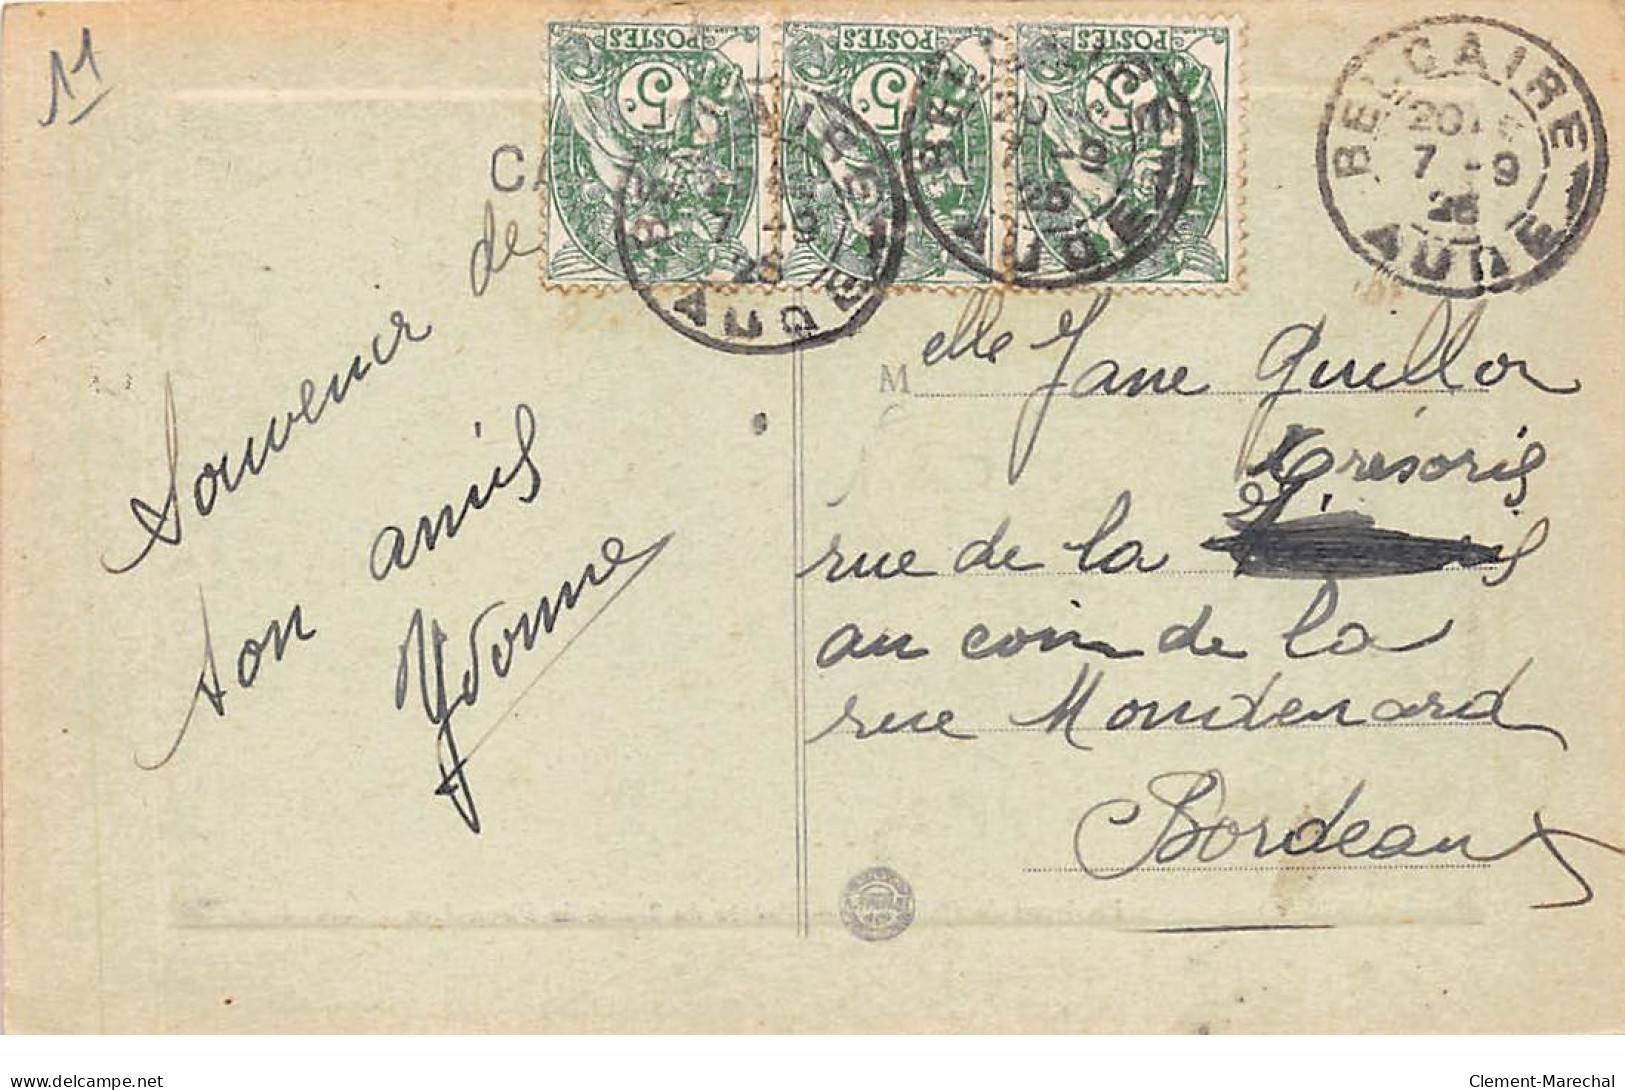 11
POSTES POSTES POSTES
5c. 5c. 5c.
BELCAIRE
20
7 - 9
26
AUDE
Souvenir de
son amie
Yvonne
Melle Jane Guillor
trésorie
rue de la
au coin de la
rue Moudenard
Bordeaux
delcampe.net
Clement-Marechal